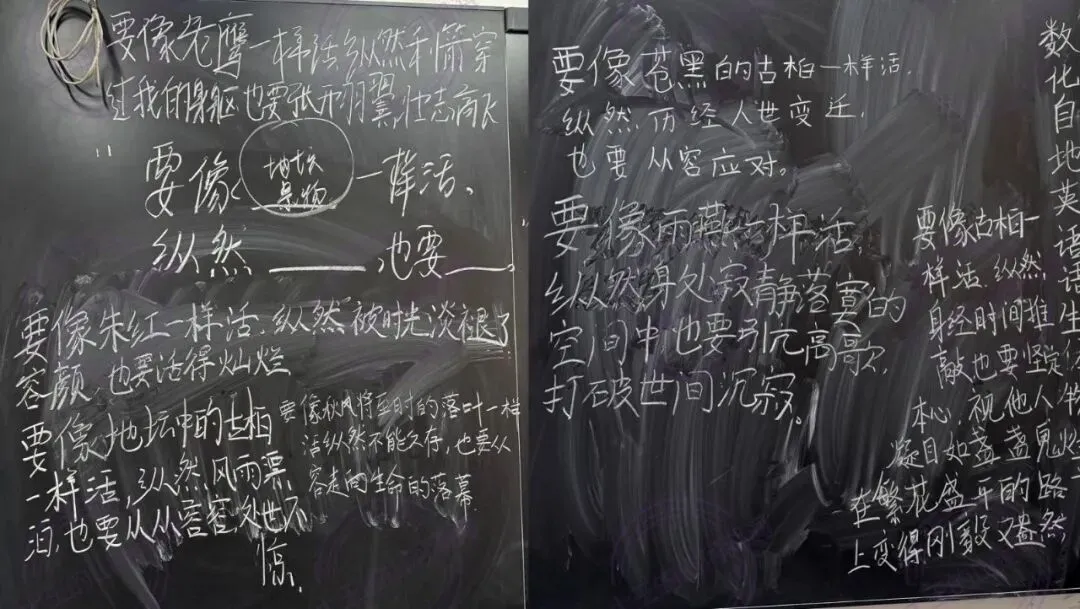 要像老鹰一样活纵然利箭穿
过我的身躯也要张开羽翼,壮志高飞
"要像 地坛
景物 一样活、
纵然____,也要____。"
要像朱红一样活,纵然被时光淡褪了
容颜,也要活得灿烂
要像地坛中的古柏
一样活,纵然风雨漂
泊,也要从从容容处世不
惊。
要像秋风将至时的落叶一样
活纵然不能久存,也要从
容走向生命的落幕
要像苍黑的古柏一样活,
纵然历经人世变迁,
也要从容应对。
要像雨燕一样活,
纵然身处寂静落寞的
空间中也要引亢高歌,
打破世间沉寂。
要像古柏一
样活 纵然
身经时间推
敲也要坚定
本心,视他人
凝目如盏盏鬼火
在繁花盛开的路
上变得刚毅又盎然
数
化
自
地
英
语
语
生